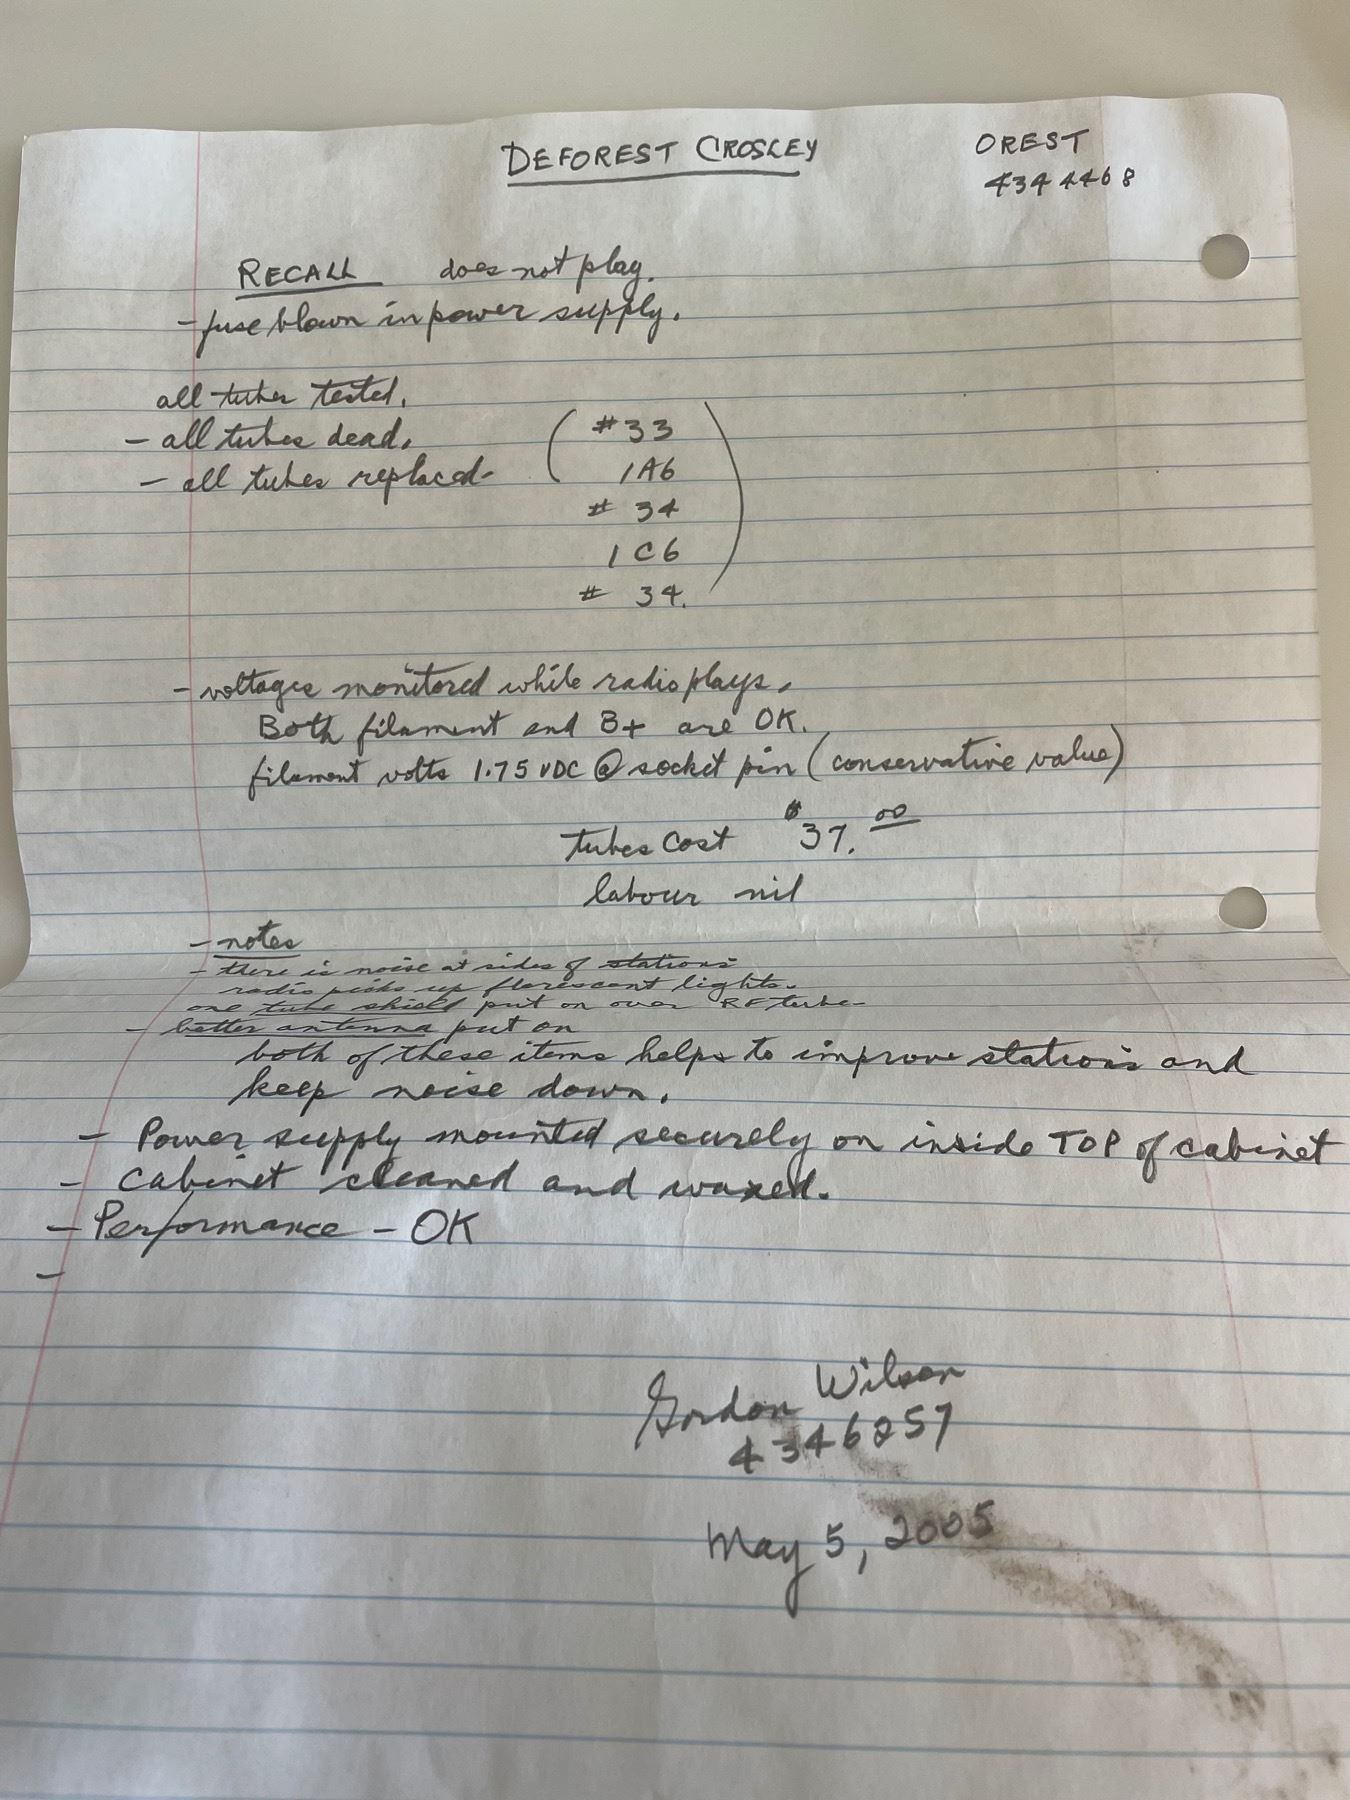 DEFOREST CROSLEY
OREST
434 4468
RECALL does not play.
- fuse blown in power supply.
all tubes tested.
- all tubes dead.
- all tubes replaced-
( #33
1A6
# 34
1C6
# 34. )
- voltages monitored while radio plays.
Both filament and B+ are OK.
filament volts 1.75 VDC @ socket pin (conservative value)
tubes cost $37.00
labour nil
- notes
- there is noise at sides of stations
radio picks up florescent lights.
one tube shield put on over RF tube-
- better antenna put on
both of these items helps to improve stations and
keep noise down.
- Power supply mounted securely on inside TOP of cabinet
- Cabinet cleaned and waxed.
- Performance - OK
-
Gordon Wilson
4346257
May 5, 2005